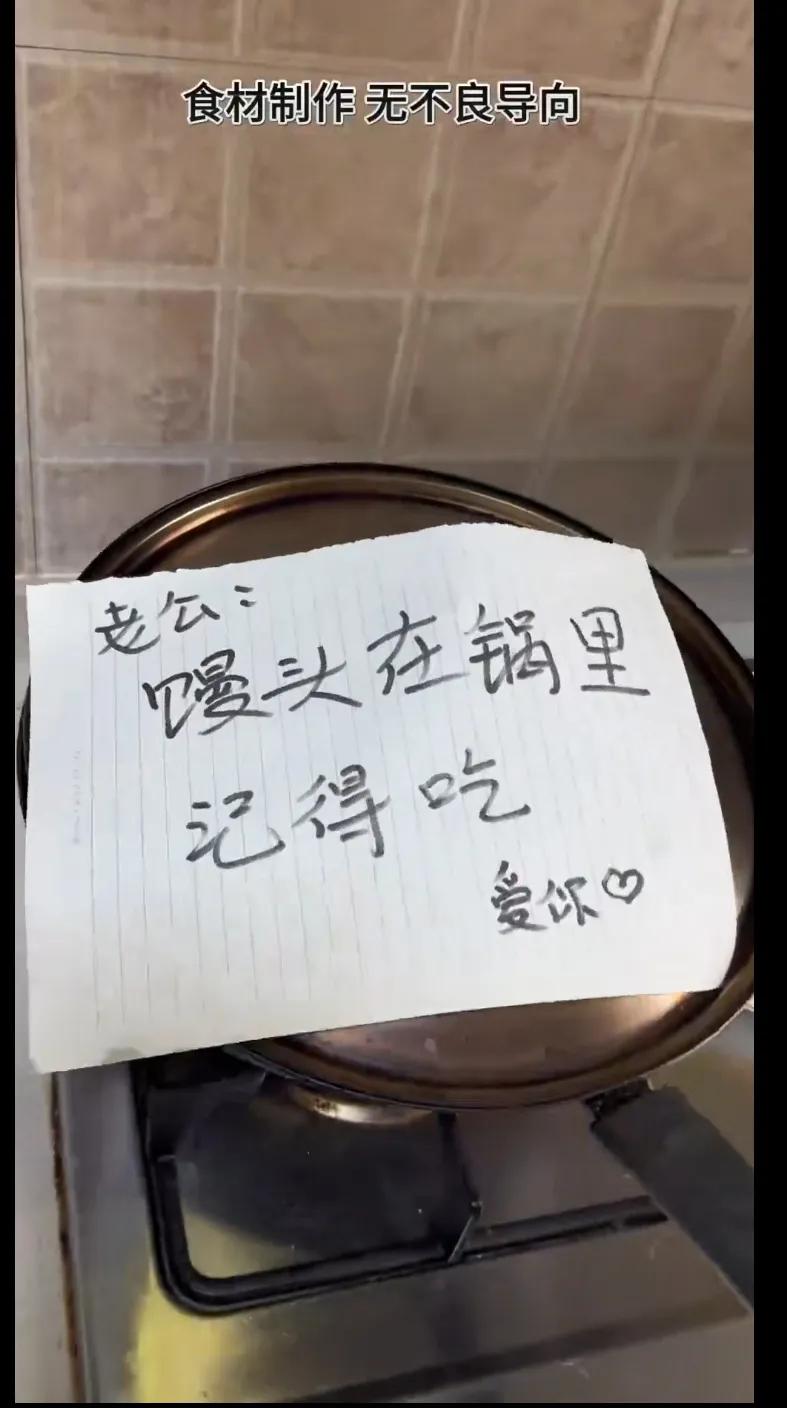 食材制作 无不良导向
老公：
馒头在锅里
记得吃
爱你♡